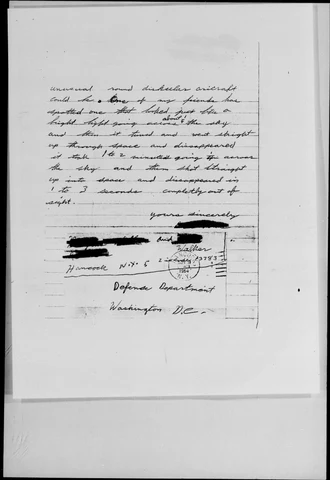 unusual round diskular aricraft
could be. One of my friends has
spotted one that looked just like a
bright light going across about the sky
and then it turned and went straight
up through space and disappeared
it took 1 to 2 minutes going across
the sky and then shot straight
up into space and disappeared in
1 to 3 seconds completly out of
sight.
yours sincerely
and
Walker
Hancock N.Y.
13783
1964
N.Y.
Defense Department
Washington D.C.